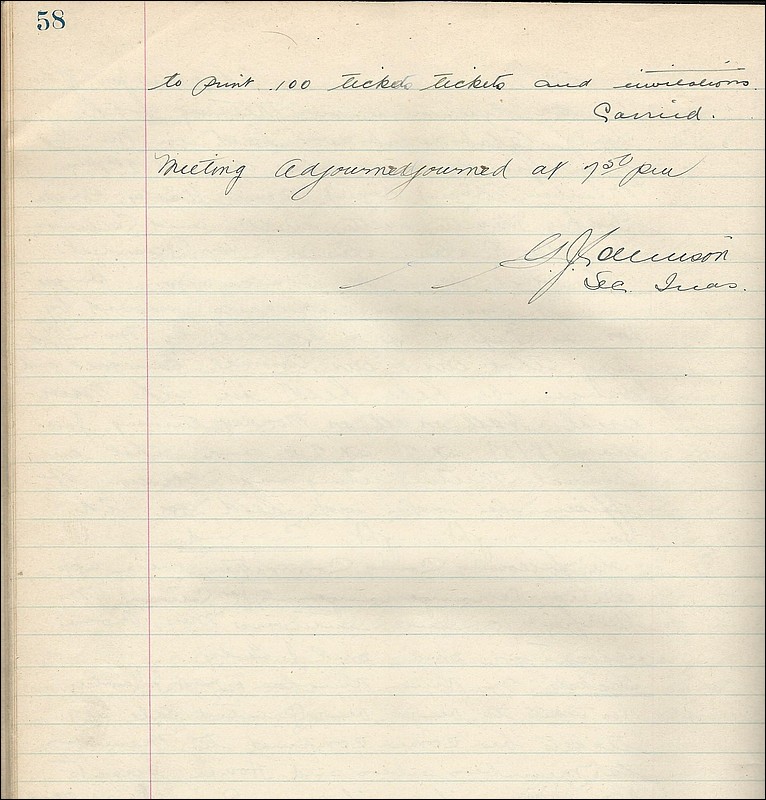 58
to print 100 tickets tickets and invitations.
Carried.
Meeting Adjournedjourned at 7 50 pm
G. J.
Sec. Treas.